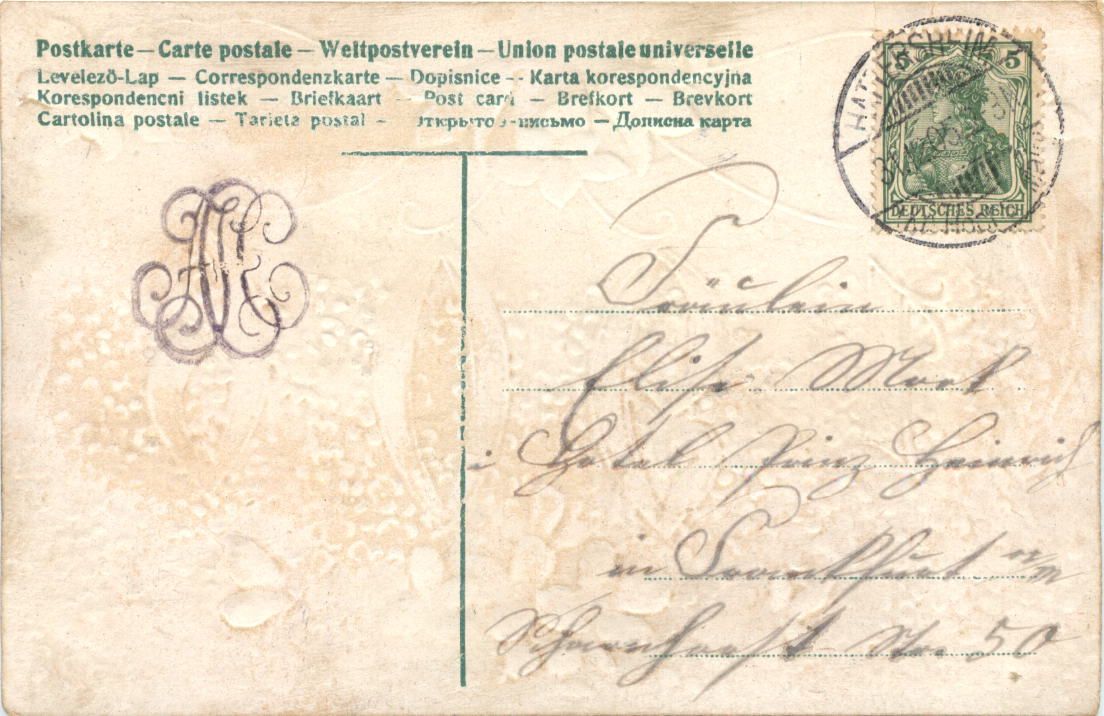 Postkarte — Carte postale — Weltpostverein — Union postale universelle
Levelező-Lap — Correspondenzkarte — Dopisnice — Karta korespondencyjna
Korespondencni listek — Briefkaart — Post card — Brefkort — Brevkort
Cartolina postale — Tarjeta postal — открытое письмо — Дописна карта
HATTERSHEIM
5 5
DEUTSCHES REICH
Fräulein
Elise
i Hotel Prinz Heinrich
in Frankfurt a/M
Scharnhorst Str. 50